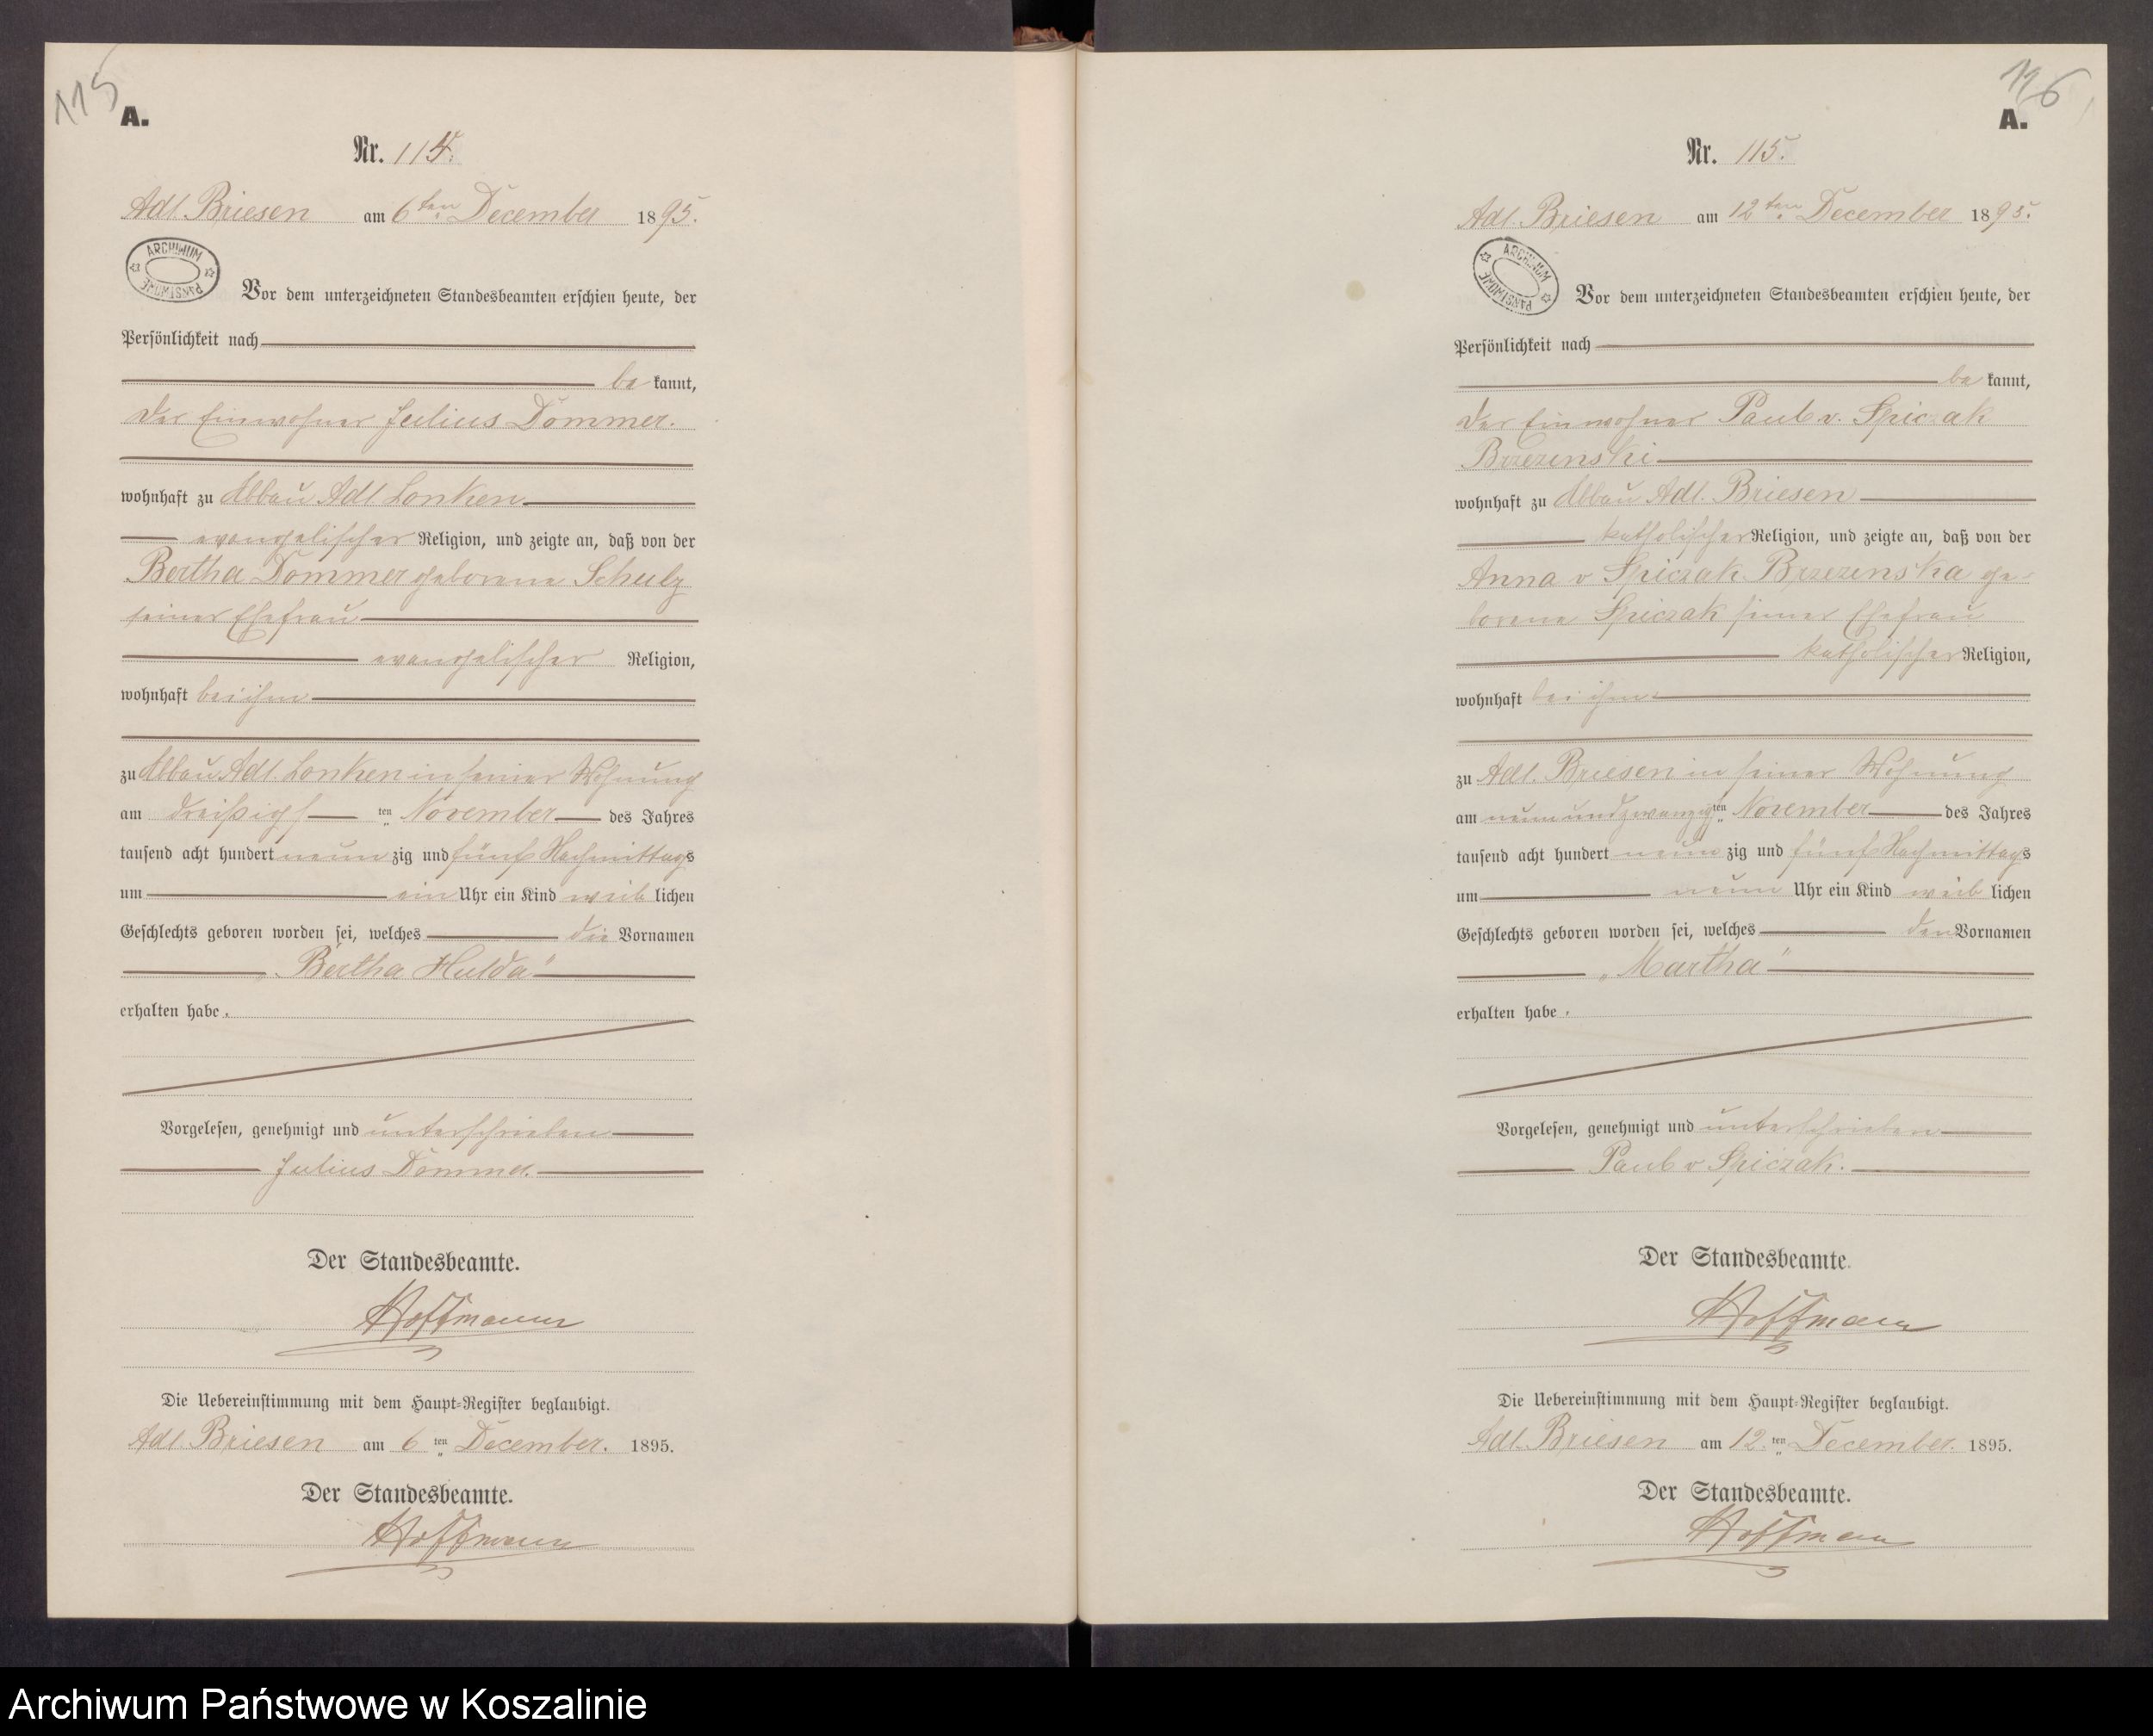 115
A.
Nr. 114.
Adl. Briesen am 6ten December 1895.
ARCHIWUM PAŃSTWOWE
Vor dem unterzeichneten Standesbeamten erschien heute, der
Persönlichkeit nach
be kannt,
der Einwohner Julius Dommer.
wohnhaft zu Abbau Adl. Lonken
evangelischer Religion, und zeigte an, daß von der
Bertha Dommer geborene Schulz
seiner Ehefrau
evangelischer Religion,
wohnhaft bei ihm
zu Abbau Adl. Lonken in seiner Wohnung
am dreißigs ten November des Jahres
tausend acht hundert neun zig und fünf Nachmittags
um ein Uhr ein Kind weib lichen
Geschlechts geboren worden sei, welches die Vornamen
„Bertha Hulda“
erhalten habe.
Vorgelesen, genehmigt und unterschrieben
Julius Dommer.
Der Standesbeamte.
Hoffmann
Die Uebereinstimmung mit dem Haupt-Register beglaubigt.
Adl. Briesen am 6 ten December. 1895.
Der Standesbeamte.
Hoffmann
116
A.
Nr. 115.
Adl. Briesen am 12ten December 1895.
ARCHIWUM PAŃSTWOWE
Vor dem unterzeichneten Standesbeamten erschien heute, der
Persönlichkeit nach
be kannt,
der Einwohner Paul v. Spiczak
Brzezinski
wohnhaft zu Abbau Adl. Briesen
katholischer Religion, und zeigte an, daß von der
Anna v Spiczak Brzezinska ge-
borene Spiczak seiner Ehefrau
katholischer Religion,
wohnhaft bei ihm
zu Adl. Briesen in seiner Wohnung
am neunundzwanzigs ten November des Jahres
tausend acht hundert neun zig und fünf Nachmittags
um neun Uhr ein Kind weib lichen
Geschlechts geboren worden sei, welches den Vornamen
„Martha“
erhalten habe.
Vorgelesen, genehmigt und unterschrieben
Paul v Spiczak.
Der Standesbeamte.
Hoffmann
Die Uebereinstimmung mit dem Haupt-Register beglaubigt.
Adl. Briesen am 12. ten December. 1895.
Der Standesbeamte.
Hoffmann
Archiwum Państwowe w Koszalinie